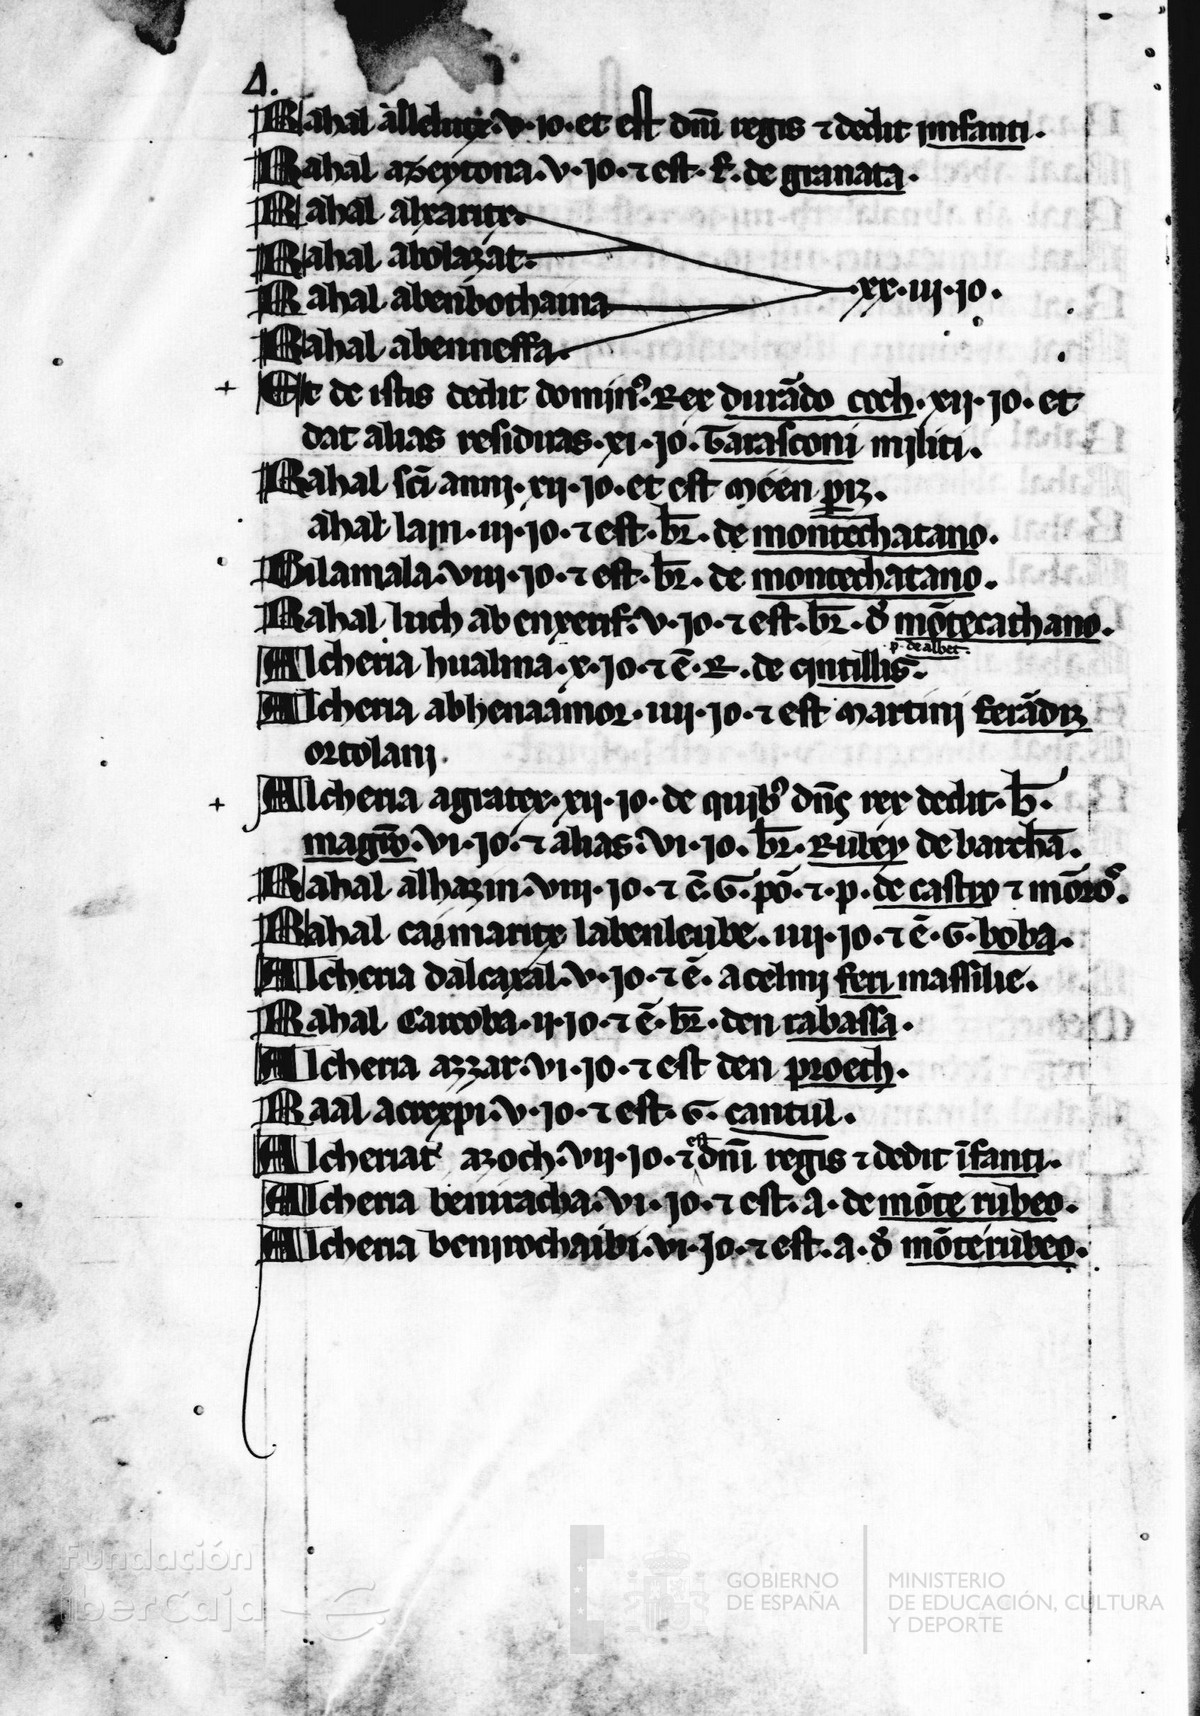 4.
Rahal alleluge. v. jo. et est dn̄i regis ⁊ dedit jnfanti.
Rahal azeytona. v. jo. ⁊ est. f̄. de granata.
Rahal alxarnix.
Rahal abolazat.
Rahal abenbochaina
Rahal abenneffa.
.xx. iij. jo.
+ Et de istis dedit domin⁹ Rex durādo coch. xij. jo. et
dat alias residuas. xi. jo. Tarasconi militi.
Rahal sc̄i annij. xij. jo. et est meen prz.
ahal lapi. iij. jo. ⁊ est. br̄. de montechatano.
Gilamala. viij. jo. ⁊ est. br̄. de montechatano.
Rahal luch abenxenf. v. jo. ⁊ est. br̄. d̄ mōtecathano.
p. de albet.
Alcheria hualma. x. jo. ⁊ ē. R. de cintillis.
Alcheria abhenaamor. iiij. jo. ⁊ est martini ferādz
ortolani.
+ Alcheria agratex. xij. jo. de quib⁹ dn̄s rex dedit. b̄.
magr̄o. vi. jo. ⁊ alias. vi. jo. br̄. Rubey de barchā.
Rahal alhazin. viij. jo. ⁊ ē. G. pō. ⁊. p. de castro ⁊ mōrō.
Rahal caimarix labenleube. iiij. jo. ⁊ ē. G. boba.
Alcheria dalcaxal. v. jo. ⁊ ē. acelmi feri massilie.
Rahal Carroba. ij. jo. ⁊ ē. br̄. den rabassa.
Alcheria azzar. vi. jo. ⁊ est den proech.
Raal acrexpi. v. jo. ⁊ est. G. cantul.
Alcheriat azoch. vij. jo. ⁊ est dn̄i regis ⁊ dedit īfanti.
Alcheria beniracha. vi. jo. ⁊ est. a. de mōte rubeo.
Alcheria benirochaibi. vi. jo. ⁊ est. a. d̄ mōterubeo.
Fundación
iberCaja
GOBIERNO
DE ESPAÑA
MINISTERIO
DE EDUCACIÓN, CULTURA
Y DEPORTE